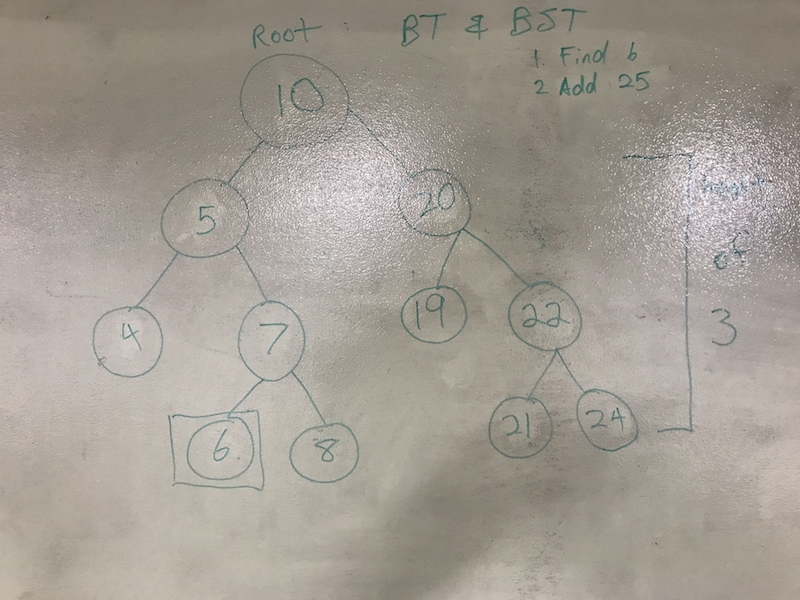 Root
BT & BST
1. Find 6
2 Add 25
10
5
20
4
7
19
22
6
8
21
24
height
of
3